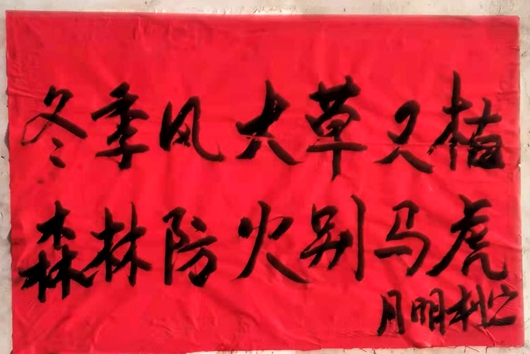 冬季风大草又植
森林防火别马虎
月明村